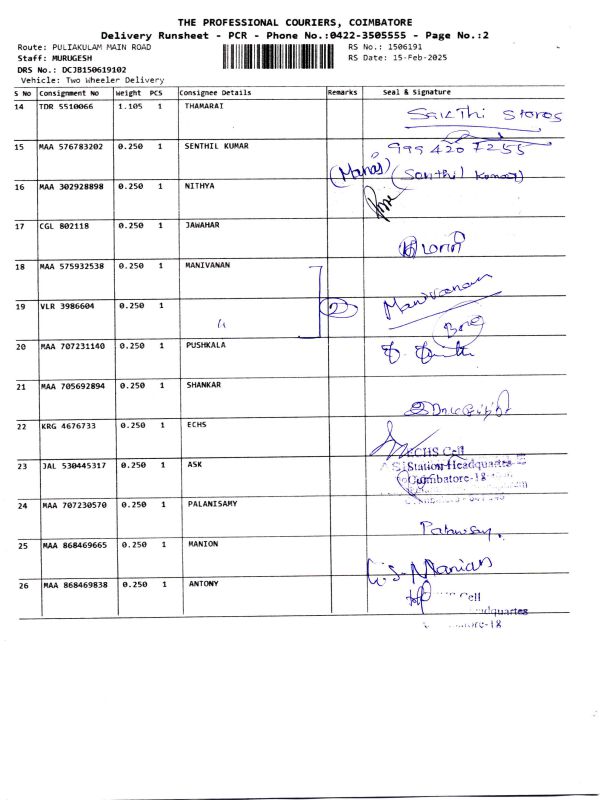 THE PROFESSIONAL COURIERS, COIMBATORE
Delivery Runsheet - PCR - Phone No.:0422-3505555 - Page No.:2
Route: PULIAKULAM MAIN ROAD RS No.: 1506191
Staff: MURUGESH RS Date: 15-Feb-2025
DRS No.: DCJB150619102
Vehicle: Two Wheeler Delivery
S No Consignment No Weight PCS Consignee Details Remarks Seal & Signature
14 TDR 5510066 1.105 1 THAMARAI Sakthi Stores
15 MAA 576783202 0.250 1 SENTHIL KUMAR 9994207255
(Senthil Kumar)
16 MAA 302928898 0.250 1 NITHYA
17 CGL 802118 0.250 1 JAWAHAR
18 MAA 575932538 0.250 1 MANIVANAN Manivanan
19 VLR 3986604 0.250 1 " 2
20 MAA 707231140 0.250 1 PUSHKALA
21 MAA 705692894 0.250 1 SHANKAR
22 KRG 4676733 0.250 1 ECHS ECHS Cell
23 JAL 530445317 0.250 1 ASK Station Headquartes
Coimbatore-18
24 MAA 707230570 0.250 1 PALANISAMY
25 MAA 868469665 0.250 1 MANION
26 MAA 868469838 0.250 1 ANTONY Cell